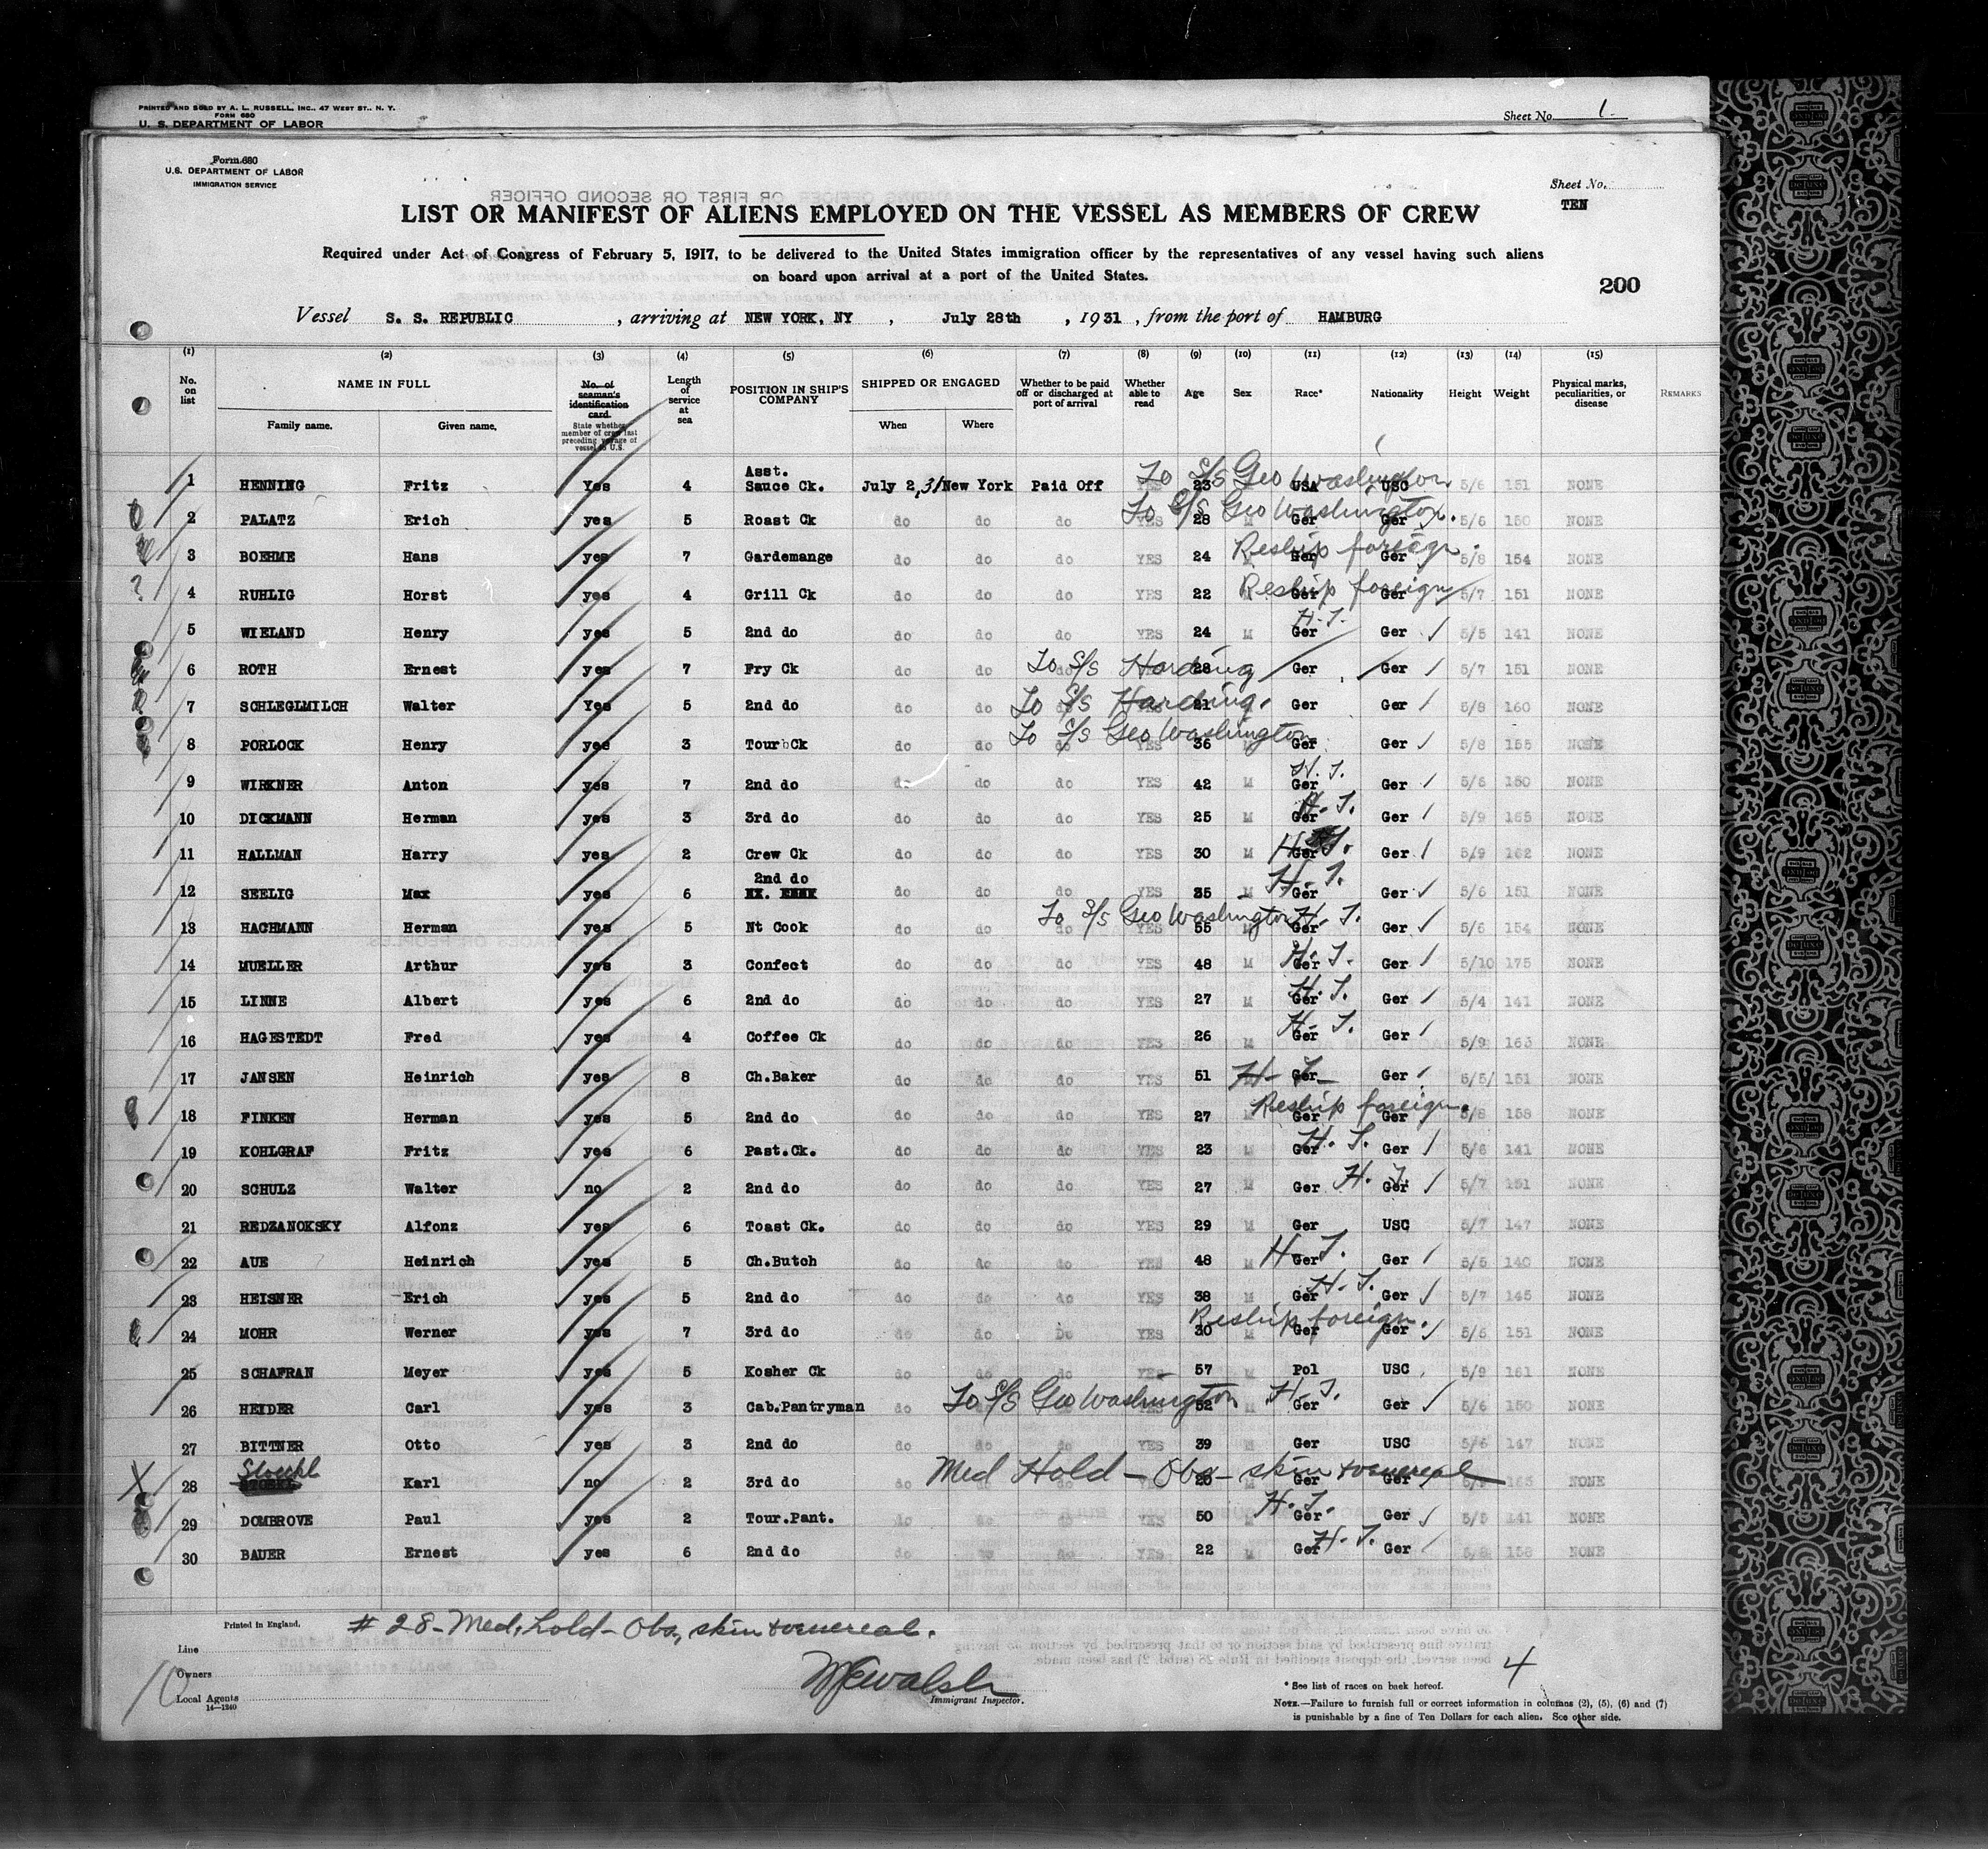 PRINTED AND SOLD BY A. L. RUSSELL, INC., 47 WEST ST., N. Y.
FORM 680
U. S. DEPARTMENT OF LABOR
Sheet No. 1
Form 680
U.S. DEPARTMENT OF LABOR
IMMIGRATION SERVICE
Sheet No.
TEN
LIST OR MANIFEST OF ALIENS EMPLOYED ON THE VESSEL AS MEMBERS OF CREW
Required under Act of Congress of February 5, 1917, to be delivered to the United States immigration officer by the representatives of any vessel having such aliens
on board upon arrival at a port of the United States.
200
Vessel S. S. REPUBLIC, arriving at NEW YORK, NY, July 28th, 1931, from the port of HAMBURG
(1) (2) (3) (4) (5) (6) (7) (8) (9) (10) (11) (12) (13) (14) (15)
No. on list NAME IN FULL Family name. Given name. No. of seaman's identification card. State whether member of crew last preceding voyage of vessel to U.S. Length of service at sea POSITION IN SHIP'S COMPANY SHIPPED OR ENGAGED When Where Whether to be paid off or discharged at port of arrival Whether able to read Age Sex Race* Nationality Height Weight Physical marks, peculiarities, or disease REMARKS
1 HENNING Fritz Yes 4 Asst. Sauce Ck. July 2,31 New York Paid Off YES 23 USA USC 5/6 151 NONE To S/S Geo Washington
2 PALATZ Erich yes 5 Roast Ck do do do YES 28 M Ger Ger 5/6 150 NONE To S/S Geo Washington.
3 BOEHME Hans yes 7 Gardemange do do do YES 24 Ger Ger 5/8 154 NONE Reship foreign.
4 RUHLIG Horst yes 4 Grill Ck do do do YES 22 Ger Ger 5/7 151 NONE Reship foreign
5 WIELAND Henry yes 5 2nd do do do do YES 24 M Ger H.T. Ger 5/5 141 NONE
6 ROTH Ernest yes 7 Fry Ck do do do 28 Ger Ger 5/7 151 NONE To S/S Harding
7 SCHLEGLMILCH Walter Yes 5 2nd do do do do 21 Ger Ger 5/8 160 NONE To S/S Harding.
8 PORLOCK Henry yes 3 Tour Ck do do do YES 36 Ger Ger 5/8 155 NONE To S/S Geo Washington
9 WIRKNER Anton yes 7 2nd do do do do YES 42 M Ger H.T. Ger 5/6 150 NONE
10 DICKMANN Herman yes 3 3rd do do do do YES 25 M Ger H.T. Ger 5/9 165 NONE
11 HALLMAN Harry yes 2 Crew Ck do do do YES 30 M Ger H.T. Ger 5/9 162 NONE
12 SEELIG Max yes 6 2nd do do do do YES 35 M Ger H.T. Ger 5/6 151 NONE
13 HACHMANN Herman yes 5 Nt Cook do do do YES 55 M Ger H.T. Ger 5/6 154 NONE To S/S Geo Washington
14 MUELLER Arthur yes 3 Confect do do do YES 48 M Ger H.T. Ger 5/10 175 NONE
15 LINNE Albert yes 6 2nd do do do do YES 27 M Ger H.T. Ger 5/4 141 NONE
16 HAGESTEDT Fred yes 4 Coffee Ck do do do YES 26 M Ger H.T. Ger 5/9 163 NONE
17 JANSEN Heinrich yes 8 Ch.Baker do do do YES 51 Ger H.T. Ger 5/5 151 NONE
18 FINKEN Herman yes 5 2nd do do do do YES 27 Ger Ger 5/8 158 NONE Reship foreign.
19 KOHLGRAF Fritz yes 6 Past.Ck. do do do YES 23 M Ger H.T. Ger 5/6 141 NONE
20 SCHULZ Walter no 2 2nd do do do do YES 27 M Ger H.T. Ger 5/7 151 NONE
21 REDZANOKSKY Alfonz yes 6 Toast Ck. do do do YES 29 M Ger USC 5/7 147 NONE
22 AUE Heinrich yes 5 Ch.Butch do do do YES 48 M Ger H.T. Ger 5/5 140 NONE
23 HEISNER Erich yes 5 2nd do do do do YES 38 M Ger H.T. Ger 5/7 145 NONE
24 MOHR Werner yes 7 3rd do do do Do YES 30 Ger Ger 5/6 151 NONE Reship foreign.
25 SCHAFRAN Meyer yes 5 Kosher Ck do do do YES 57 M Pol USC 5/9 161 NONE
26 HEIDER Carl yes 3 Cab.Pantryman do do do YES 52 Ger H.T. Ger 5/6 150 NONE To S/S Geo Washington
27 BITTNER Otto yes 3 2nd do do do do YES 39 M Ger USC 5/6 147 NONE
28 Stoeckl Karl no 2 3rd do do Ger Ger 165 NONE Med Hold - Obs - skin & venereal
29 DOMBROVE Paul yes 2 Tour.Pant. do do do YES 50 M Ger H.T. Ger 5/5 141 NONE
30 BAUER Ernest yes 6 2nd do do do do YES 22 M Ger H.T. Ger 158 NONE
Printed in England.
# 28 - Med. hold - Obs., skin & venereal.
Line
Owners
Local Agents
14-1240
10
Immigrant Inspector.
4
* See list of races on back hereof.
NOTE.—Failure to furnish full or correct information in columns (2), (5), (6) and (7)
is punishable by a fine of Ten Dollars for each alien. See other side.